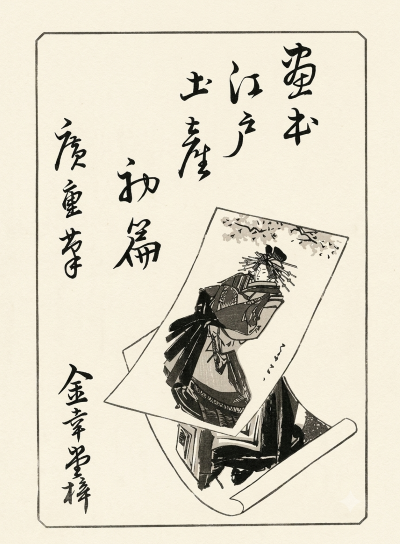 画本
江戸
土産
初篇
廣重筆
金幸堂梓